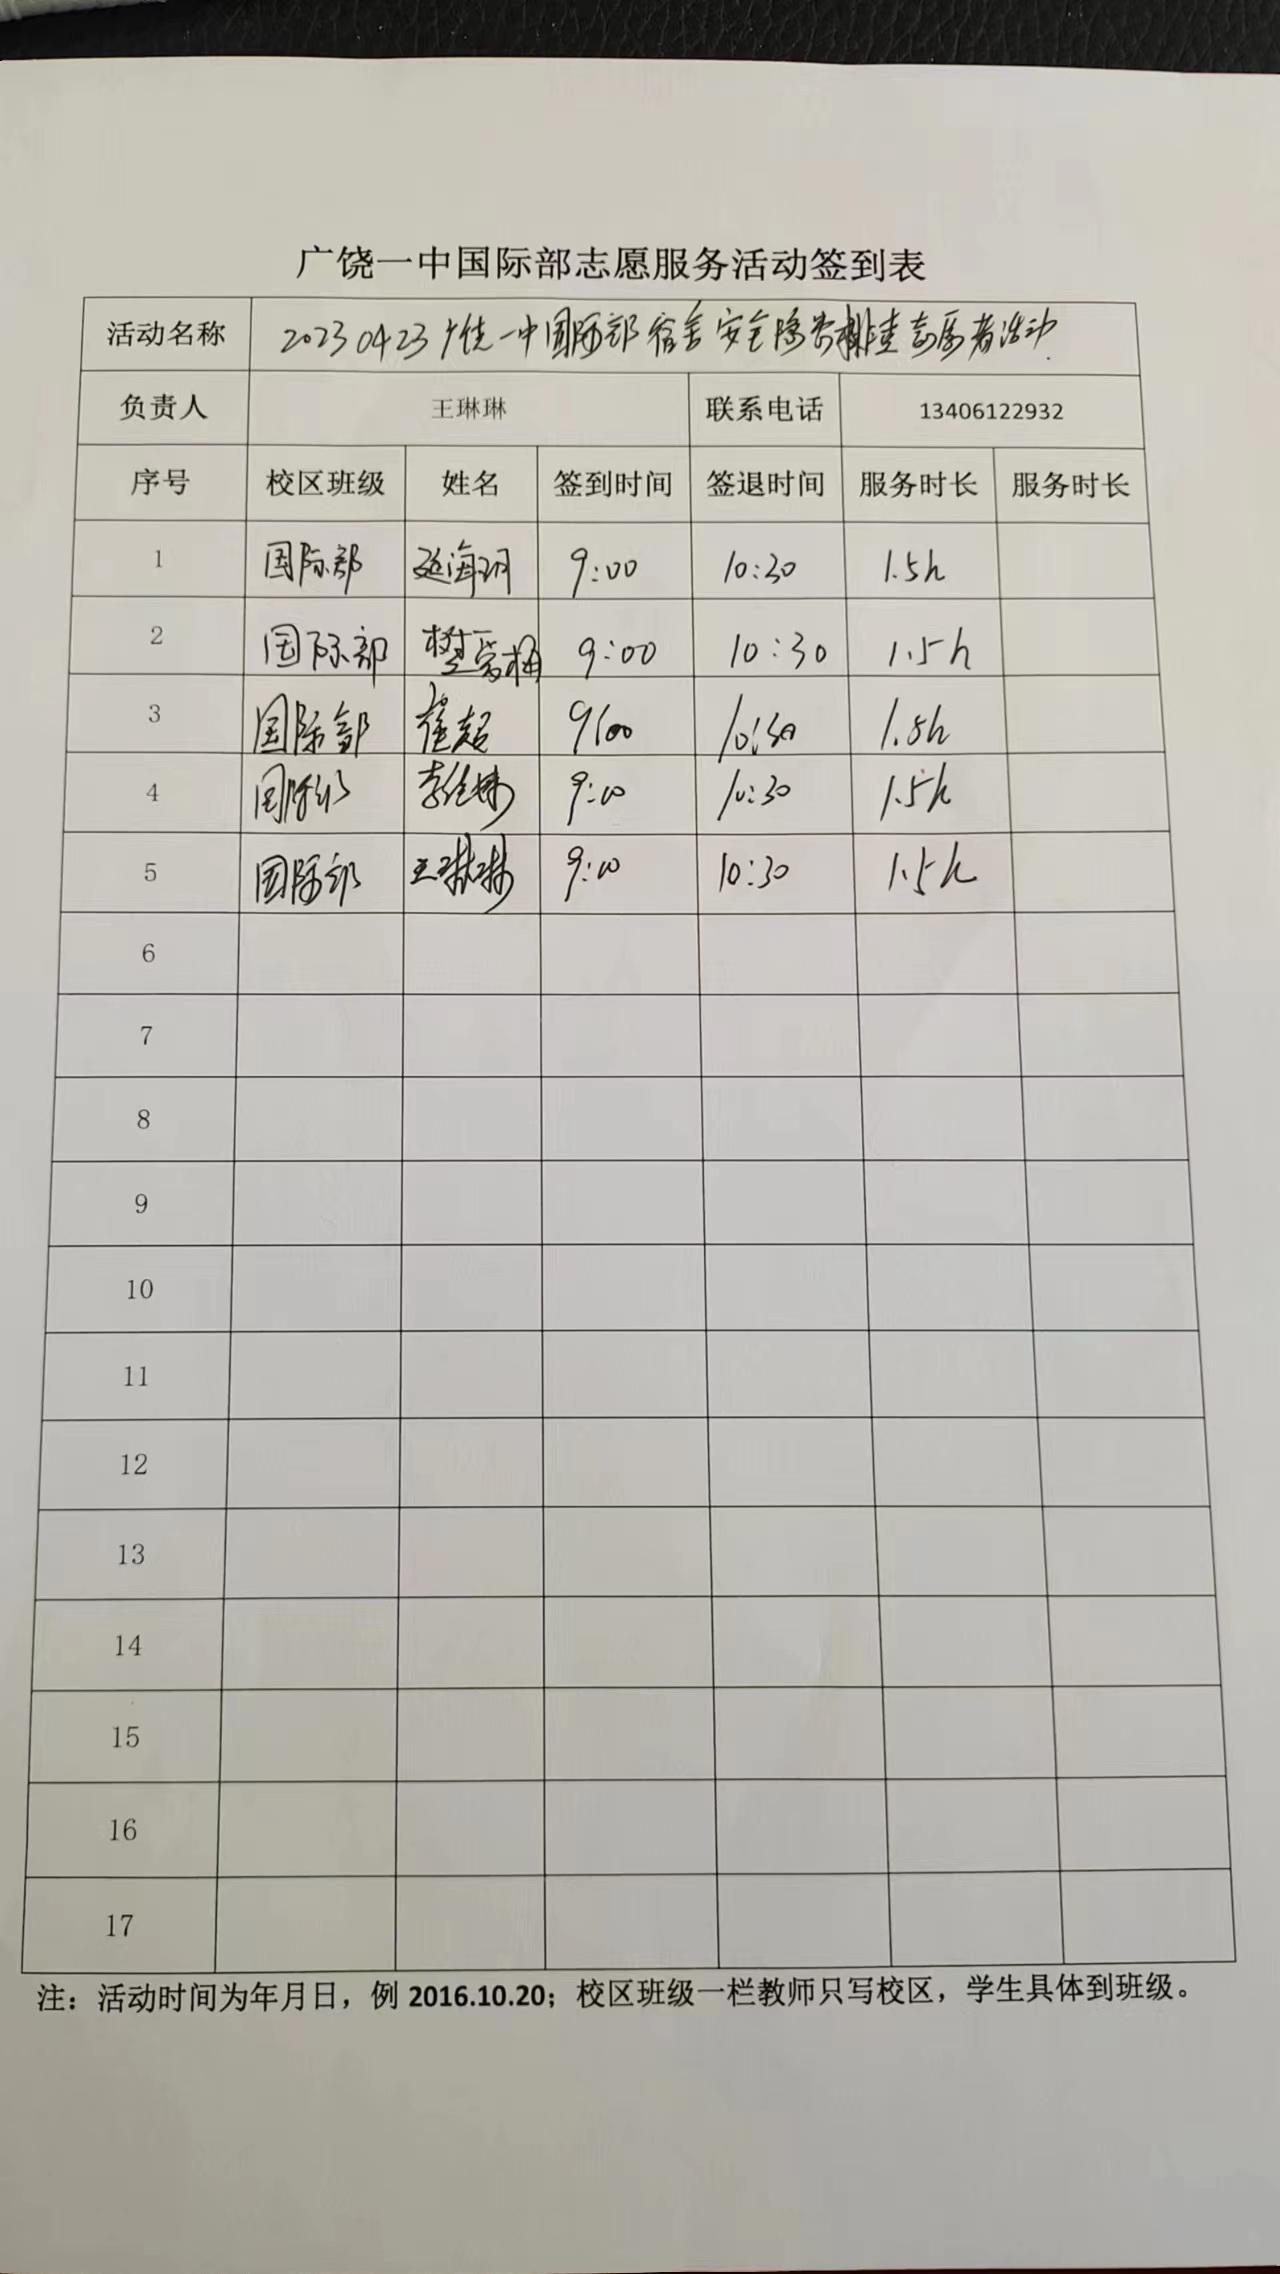 广饶一中国际部志愿服务活动签到表
活动名称 20230423广饶一中国际部宿舍安全隐患排查志愿者活动
负责人 王琳琳 联系电话 13406122932
序号 校区班级 姓名 签到时间 签退时间 服务时长 服务时长
1 国际部 延海 9:00 10:30 1.5h
2 国际部 樊 梅 9:00 10:30 1.5h
3 国际部 崔超 9:00 10:30 1.5h
4 国际部 李 9:00 10:30 1.5h
5 国际部 王琳琳 9:00 10:30 1.5h
6
7
8
9
10
11
12
13
14
15
16
17
注：活动时间为年月日，例 2016.10.20；校区班级一栏教师只写校区，学生具体到班级。